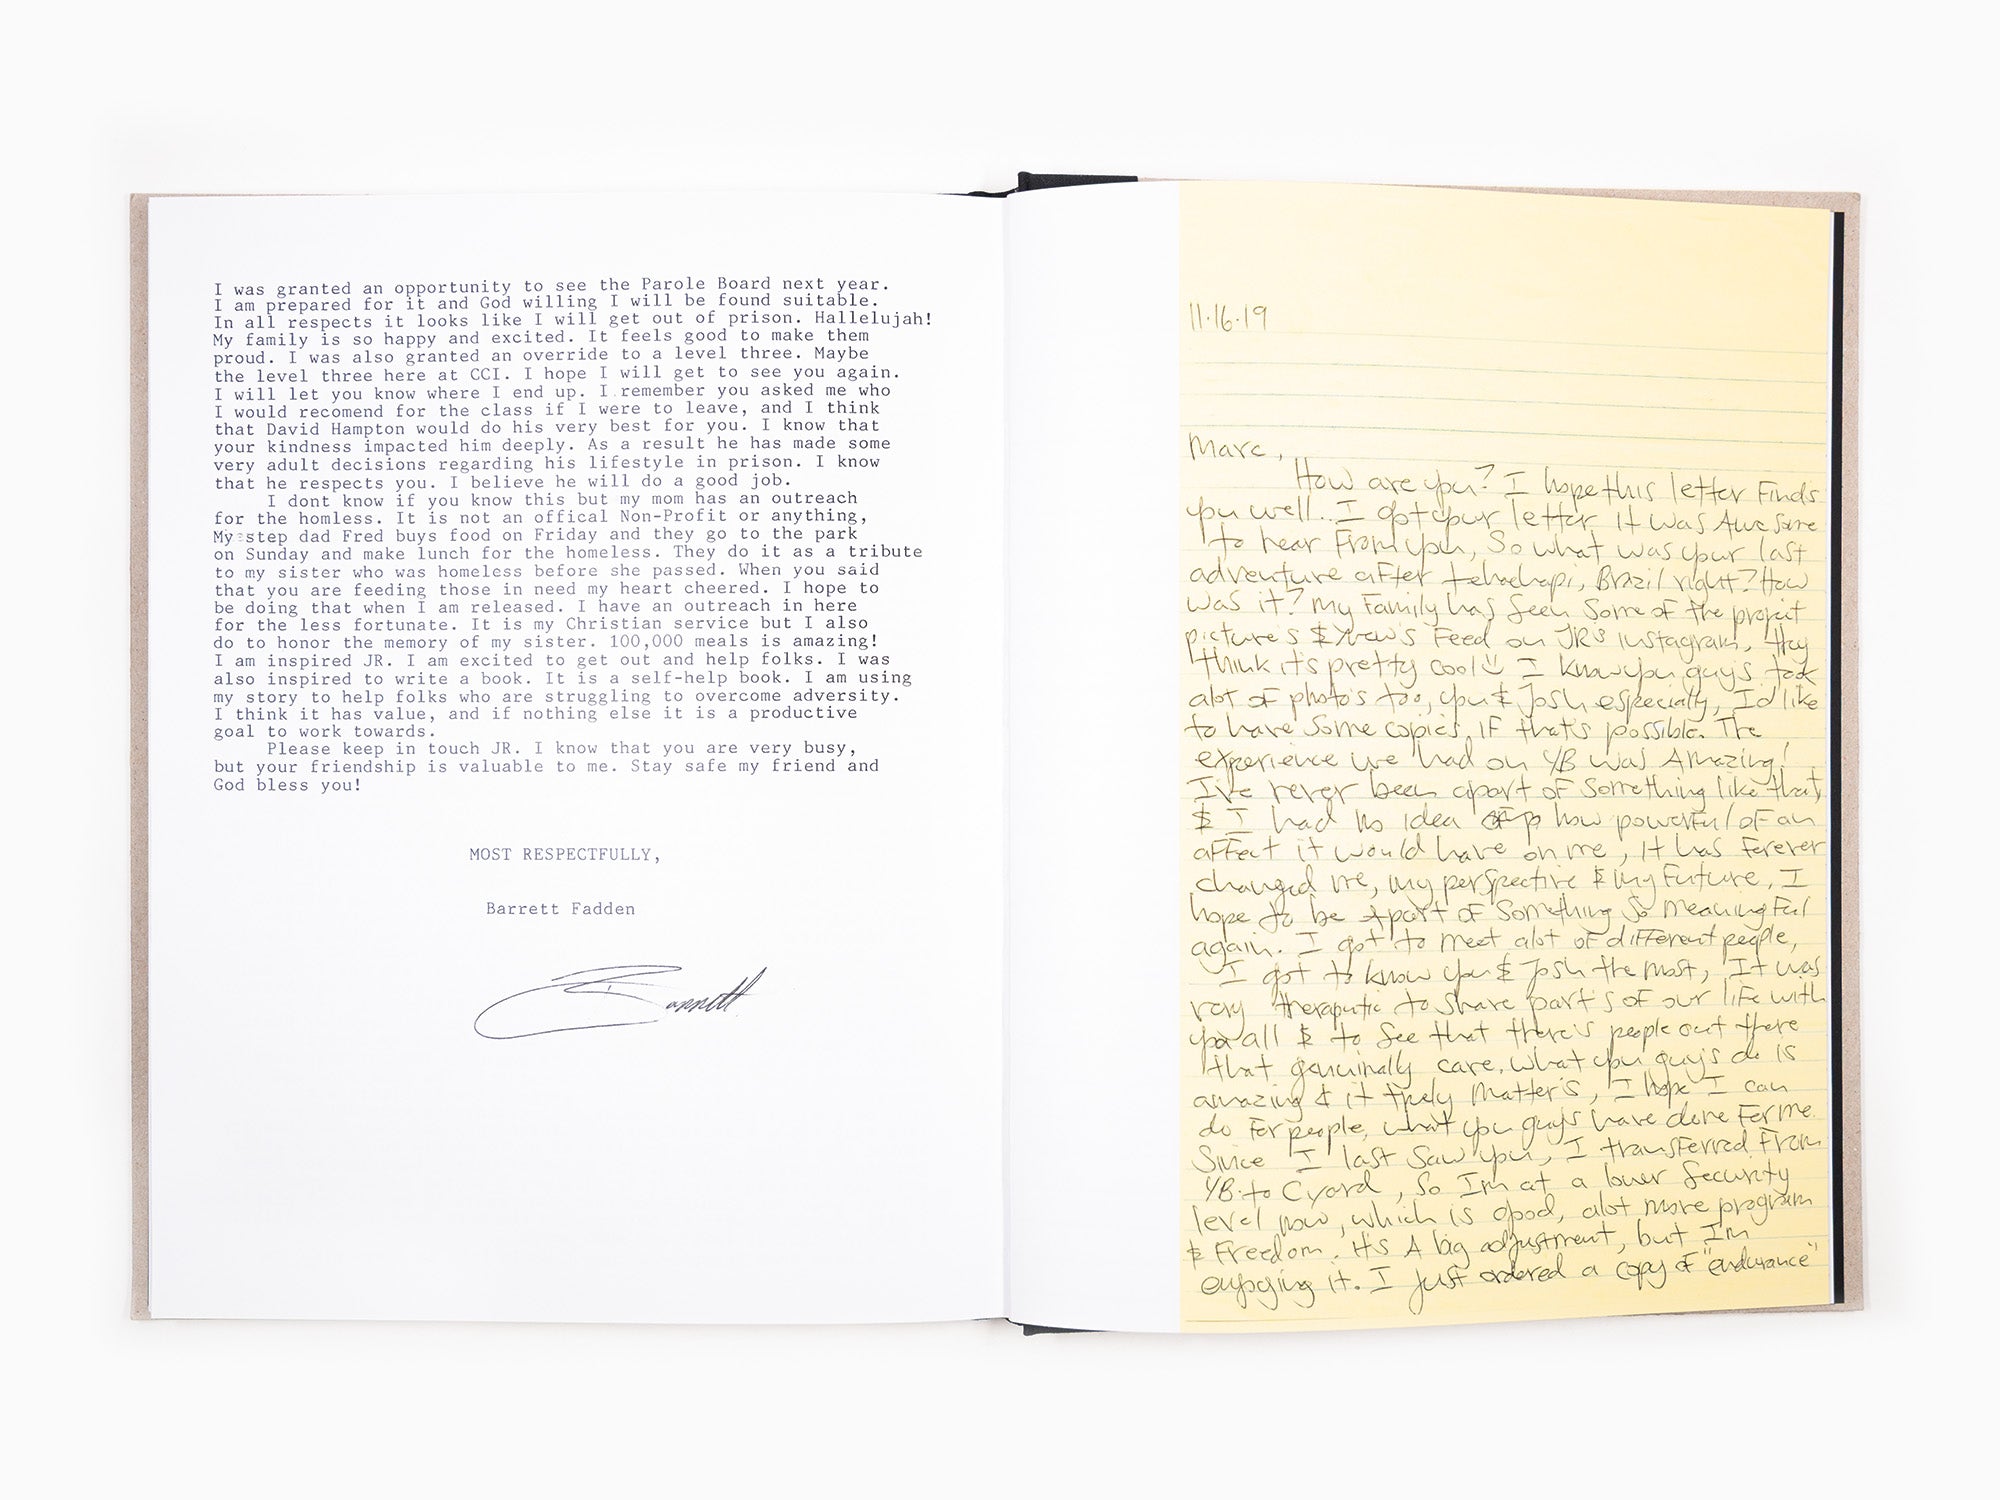 I was granted an opportunity to see the Parole Board next year.
I am prepared for it and God willing I will be found suitable.
In all respects it looks like I will get out of prison. Hallelujah!
My family is so happy and excited. It feels good to make them
proud. I was also granted an override to a level three. Maybe
the level three here at CCI. I hope I will get to see you again.
I will let you know where I end up. I remember you asked me who
I would recomend for the class if I were to leave, and I think
that David Hampton would do his very best for you. I know that
your kindness impacted him deeply. As a result he has made some
very adult decisions regarding his lifestyle in prison. I know
that he respects you. I believe he will do a good job.
I dont know if you know this but my mom has an outreach
for the homless. It is not an offical Non-Profit or anything,
My step dad Fred buys food on Friday and they go to the park
on Sunday and make lunch for the homeless. They do it as a tribute
to my sister who was homeless before she passed. When you said
that you are feeding those in need my heart cheered. I hope to
be doing that when I am released. I have an outreach in here
for the less fortunate. It is my Christian service but I also
do to honor the memory of my sister. 100,000 meals is amazing!
I am inspired JR. I am excited to get out and help folks. I was
also inspired to write a book. It is a self-help book. I am using
my story to help folks who are struggling to overcome adversity.
I think it has value, and if nothing else it is a productive
goal to work towards.
Please keep in touch JR. I know that you are very busy,
but your friendship is valuable to me. Stay safe my friend and
God bless you!
MOST RESPECTFULLY,
Barrett Fadden
Barrett
11.16.19
Marc,
How are you? I hope this letter Finds
you well. I got your letter it was Awesome
to hear From you, So what was your last
adventure after tehachapi, Brazil right? How
was it? my Family has seen some of the project
picture's & Feed on JR's instagram, they
think it's pretty cool I know you guy's took
alot of photo's too, you & Josh especially, I'd like
to have some copies, IF that's possible. The
experience we had on 4B was Amazing!
I've never been apart of something like that,
& I had no idea how powerful of an
affect it would have on me, it has forever
changed me, my perspective & my Future, I
hope to be apart of something so meaningful
again. I got to meet alot of different people,
I got to know you & Josh the most, It was
very theraputic to share part's of our life with
you all & to see that there's people out there
that genuinally care. what you guy's do is
amazing & it truly matter's, I hope I can
do For people, what you guy's have done For me.
Since I last saw you, I transferred From
4B to Cyard, so Im at a lower security
level now, which is good, alot more program
& Freedom. It's A big adjustment, but I'm
enjoying it. I just ordered a copy of "endurance"